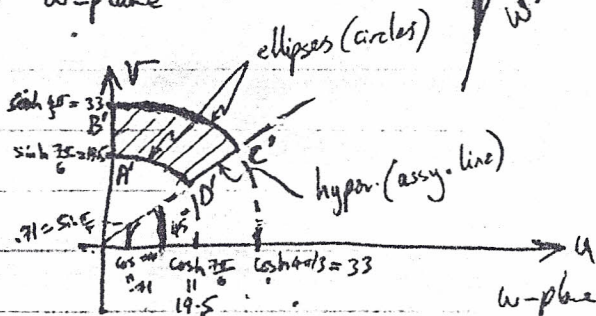 w-plane
w
ellipses (circles)
v
sinh 4π/3 = 33
B'
sinh 7π/6 = 19.5
A'
C'
D'
hyper. (assy. line)
.71 = sin π/4
45°
u
cosh 7π/6
cosh 4π/3 = 33
"
.71
"
19.5
w-plane